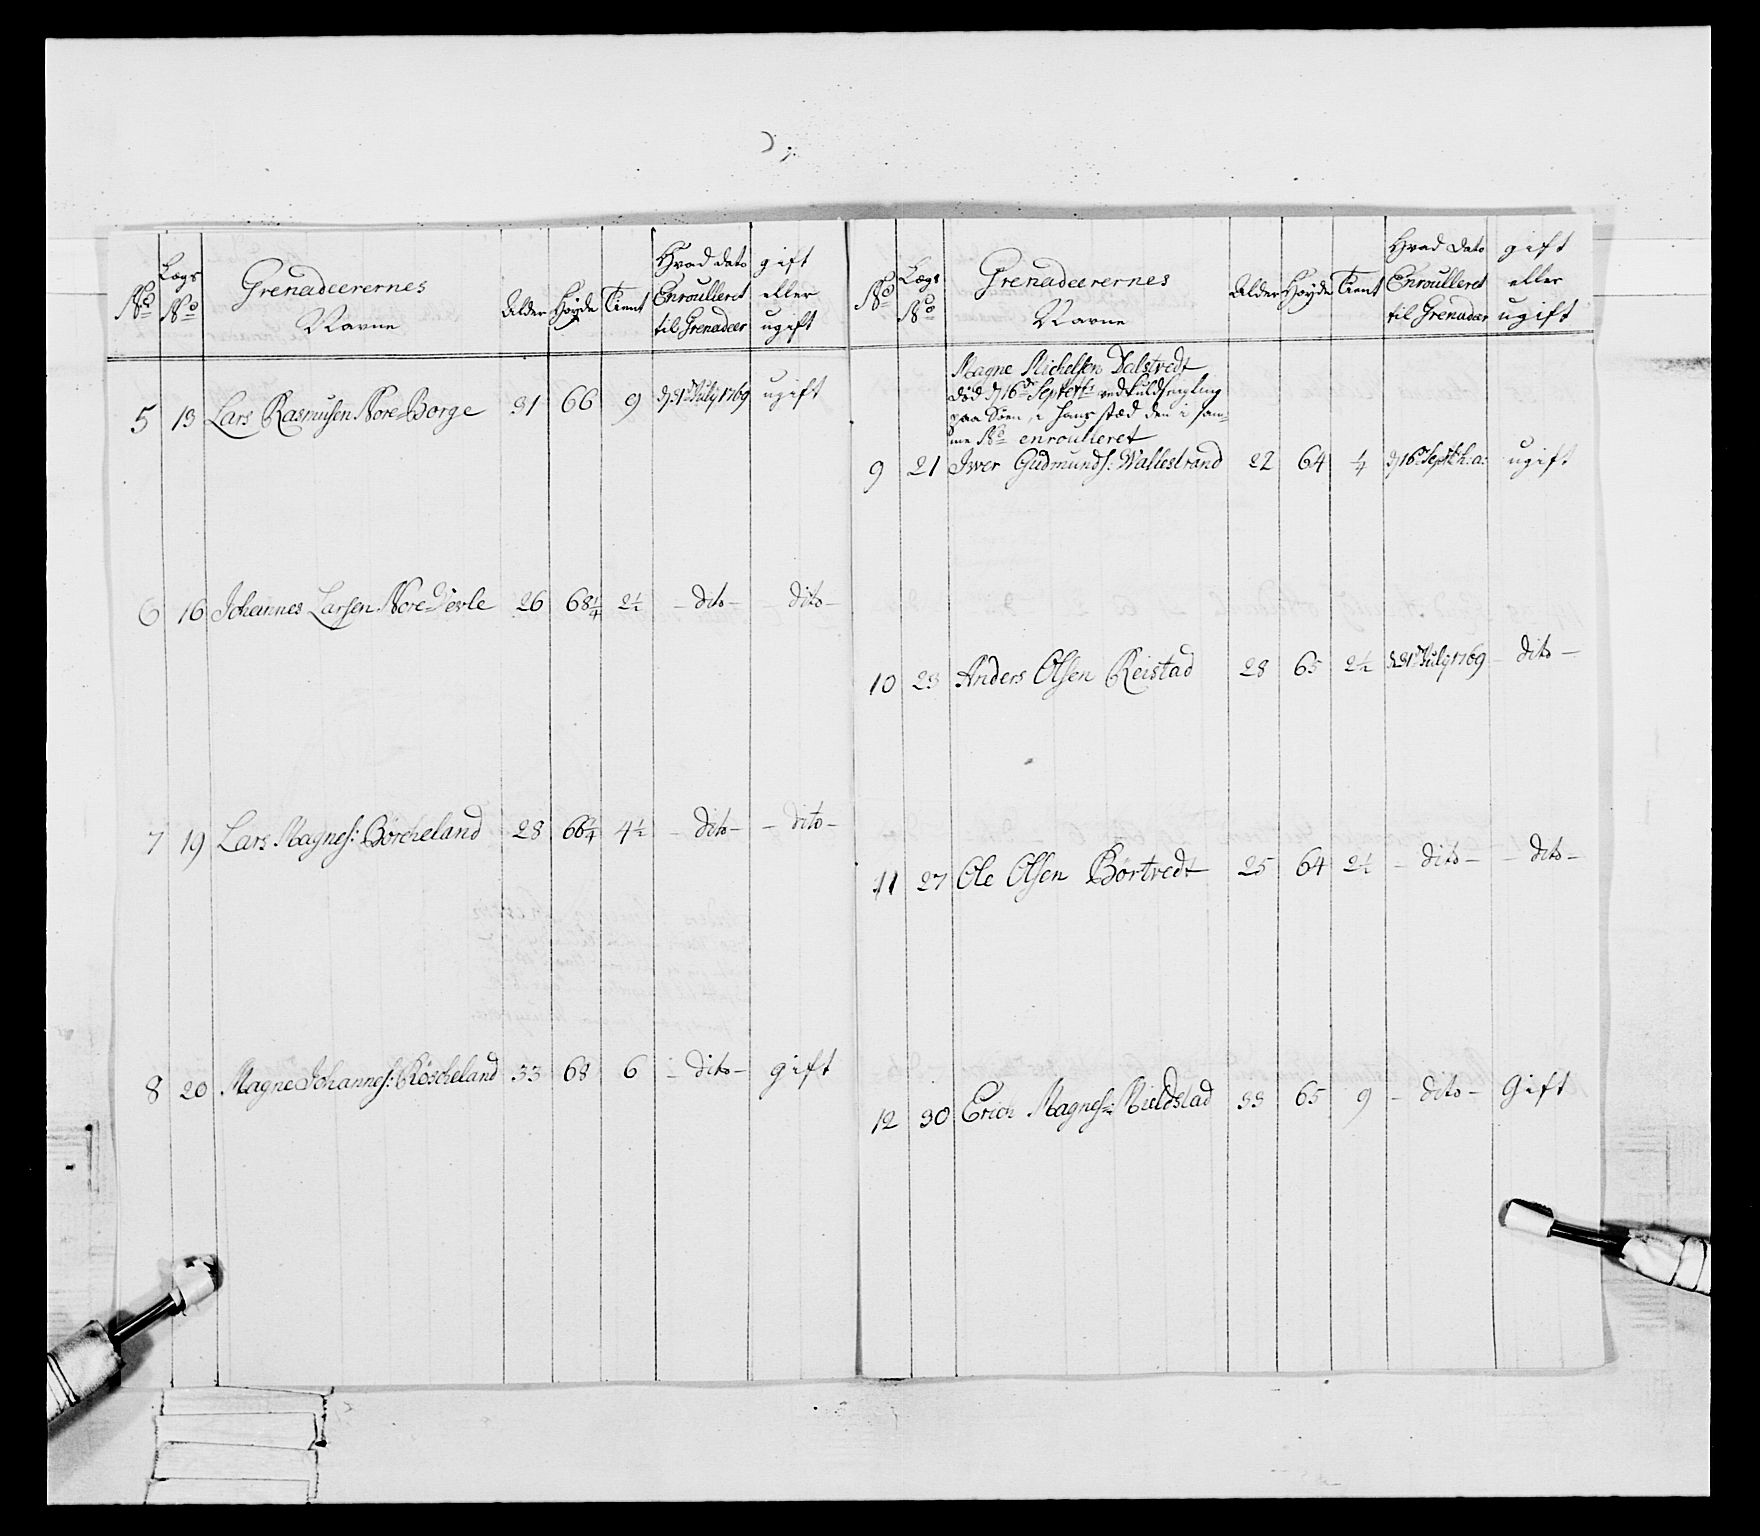 No Lægs No Grenadeerernes Navne Alder Høyde Tient Hvad dato Enroulleret til Grenadeer gift eller ugift
5 13 Lars Rasmusen Nore Borge 31 66 9 d: 31 July 1769 ugift
6 16 Johannes Larsen Nore 26 68 1/4 2 1/2 – dito – dito –
7 19 Lars Magnes: Børcheland 28 66 1/4 4 1/2 – dito – – dito –
8 20 Magne Johannes: Røscheland 33 68 6 – dito – gift
No Lægs No Grenadeerernes Navne Alder Høyde Tient Hvad dato Enroulleret til Grenadeer gift eller ugift
Magne Michelsen Dalstvedt
død d 16de Septbr ved Kuldseyling
paa Søen, i hans stæd den i sam-
me No enroulleret
9 21 Iver Gudmunds: Wallestrand 22 64 1/4 d 16 Septb: h: a: ugift
10 23 Anders Olsen Reistad 28 65 2 1/2 d 31 July 1769 – dito –
11 27 Ole Olsen Børtvedt 25 64 2 1/2 – dito – – dito –
12 30 Erich Magnes: Mieldstad 33 65 9 – dito – Gift